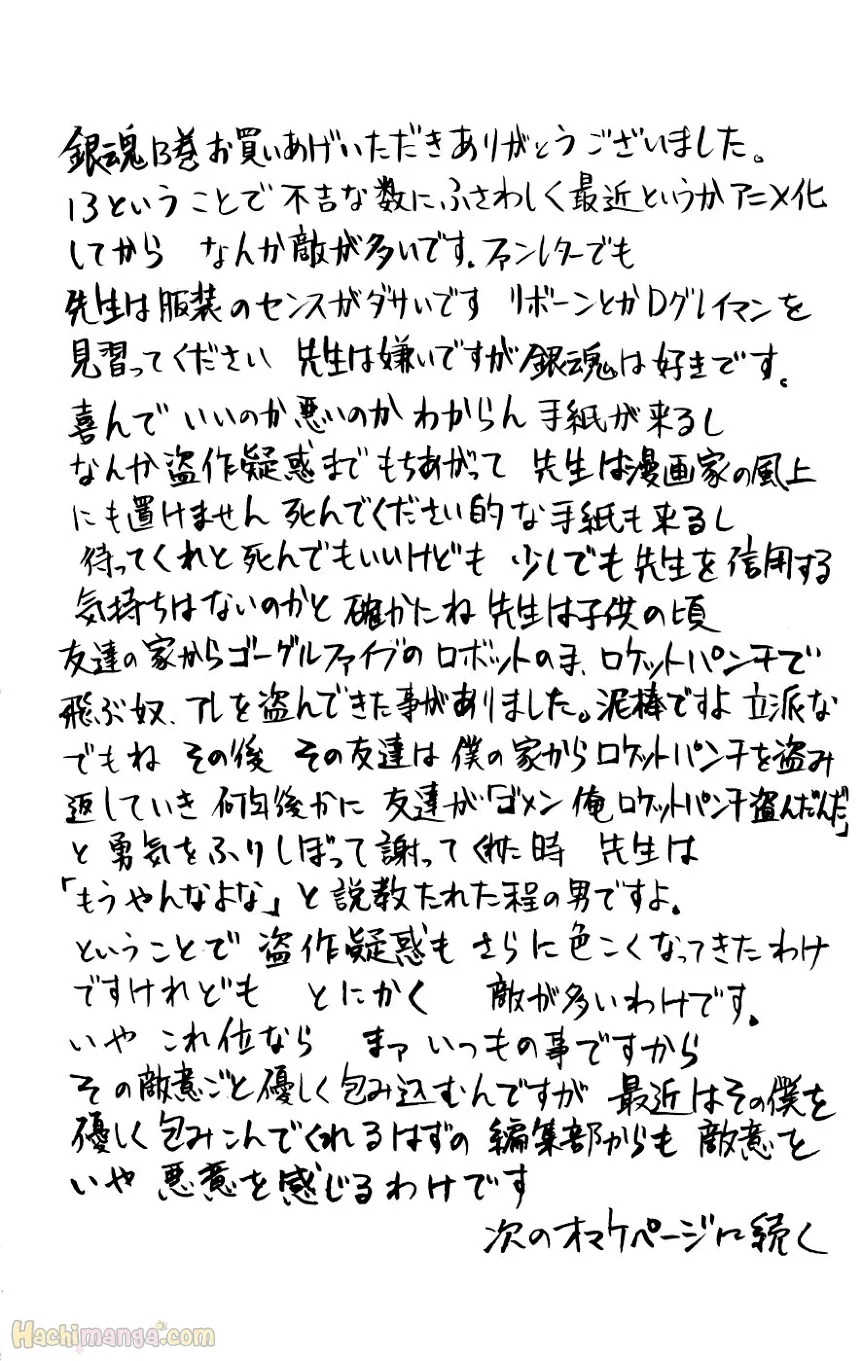 銀魂13巻お買いあげいただきありがとうございました。
13ということで不吉な数にふさわしく最近というかアニメ化
してから なんか敵が多いです。ファンレターでも
先生は服装のセンスがダサいです リボーンとかDグレイマンを
見習ってください 先生は嫌いですが銀魂は好きです。
喜んでいいのか悪いのかわからん手紙が来るし
なんか盗作疑惑までもちあがって 先生は漫画家の風上
にも置けません死んでください的な手紙も来るし
待ってくれと死んでもいいけども 少しでも先生を信用する
気持ちはないのかと確かにね先生は子供の頃
友達の家からゴーグルファイブのロボットの手、ロケットパンチで
飛ぶ奴、アレを盗んできた事がありました。泥棒ですよ立派な
でもね その後 その友達は僕の家からロケットパンチを盗み
返していき何年後かに 友達が「ゴメン俺ロケットパンチ盗んだんだ」
と勇気をふりしぼって謝ってくれた時 先生は
「もうやんなよな」と説教たれた程の男ですよ。
ということで盗作疑惑もさらに色こくなってきたわけ
ですけれども とにかく 敵が多いわけです。
いや これ位なら まァいつもの事ですから
その敵意ごと優しく包み込むんですが 最近はその僕を
優しく包みこんでくれるはずの編集部からも敵意を
いや悪意を感じるわけです
次のオマケページに続く
Hachimanga.com